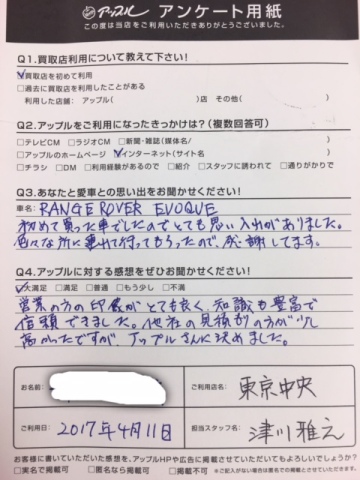 アップル アンケート用紙
この度は当店をご利用いただきありがとうございました。
Q1.買取店利用について教えて下さい!
☑買取店を初めて利用
□過去に買取店を利用したことがある
利用した店舗: アップル( )店 その他( )
Q2.アップルをご利用になったきっかけは?(複数回答可)
□テレビCM □ラジオCM □新聞・雑誌(媒体名/ )
□アップルのホームページ ☑インターネット(サイト名 )
□チラシ □DM □利用経験があるので □紹介 □スタッフに誘われて □通りがかりで
Q3.あなたと愛車との思い出をお聞かせください!
車名: RANGE ROVER EVOQUE
初めて買った車でしたのでとても思い入れがありました。
色々な所に連れて行ってもらったので、感謝してます。
Q4.アップルに対する感想をぜひお聞かせください!
☑大満足 □満足 □普通 □もう少し □不満
営業の方の印象がとても良く、知識も豊富で
信頼できました。他社の見積もりの方が少し
高かったですが、アップルさんに決めました。
お名前: ご利用店名: 東京中央
ご利用日: 2017年4月11日 担当スタッフ名: 津川雅之
お客様に書いていただいた感想を、アップルHPや広告に掲載させていただいてもよろしいでしょうか?
□実名で掲載可 □匿名なら掲載可 □掲載不可 ※ご記入がない場合は匿名での掲載とさせていただきます。